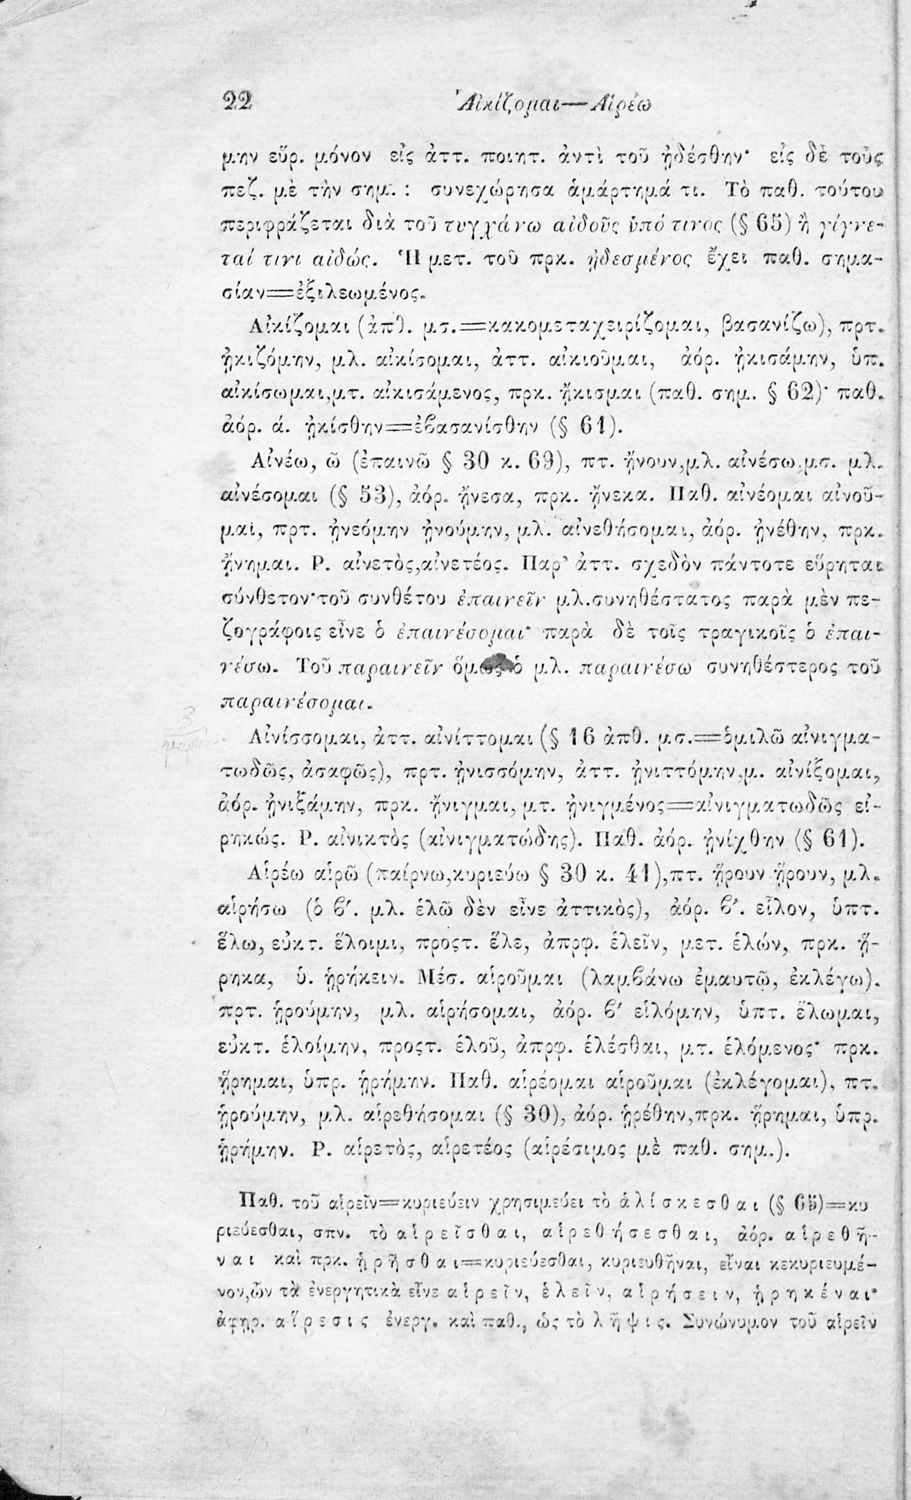 22 Αἰκίζομαι—Αἱρέω
μην εὕρ. μόνον εἰς ἀττ. ποιητ. ἀντὶ τοῦ ᾐδέσθην· εἰς δὲ τοὺς
πεζ. μὲ τὴν σημ. : συνεχώρησα ἁμάρτημά τι. Τὸ παθ. τούτου
περιφράζεται διὰ τοῦ τυγχάνω αἰδοῦς ὑπό τινος (§ 65) ἢ γίγνε-
ταί τινι αἰδώς. Ἡ μετ. τοῦ πρκ. ᾐδεσμένος ἔχει παθ. σημα-
σίαν=ἐξιλεωμένος.
Αἰκίζομαι (ἀπθ. μσ.=κακομεταχειρίζομαι, βασανίζω), πρτ.
ᾐκιζόμην, μλ. αἰκίσομαι, ἀττ. αἰκιοῦμαι, ἀόρ. ᾐκισάμην, ὑπ.
αἰκίσωμαι,μτ. αἰκισάμενος, πρκ. ᾔκισμαι (παθ. σημ. § 62)· παθ.
ἀόρ. ά. ᾐκίσθην=ἐβασανίσθην (§ 61).
Αἰνέω, ῶ (ἐπαινῶ § 30 κ. 69), πτ. ᾔνουν,μλ. αἰνέσω,μσ. μλ.
αἰνέσομαι (§ 53), ἀόρ. ᾔνεσα, πρκ. ᾔνεκα. Παθ. αἰνέομαι αἰνοῦ-
μαι, πρτ. ᾐνεόμην ᾐνούμην, μλ. αἰνεθήσομαι, ἀόρ. ᾐνέθην, πρκ.
ᾔνημαι. Ρ. αἰνετὸς,αἰνετέος. Παρ' ἀττ. σχεδὸν πάντοτε εὕρηται
σύνθετον·τοῦ συνθέτου ἐπαινεῖν μλ.συνηθέστατος παρὰ μὲν πε-
ζογράφοις εἶνε ὁ ἐπαινέσομαι· παρὰ δὲ τοῖς τραγικοῖς ὁ ἐπαι-
νέσω. Τοῦ παραινεῖν ὅμως ὁ μλ. παραινέσω συνηθέστερος τοῦ
παραινέσομαι.
Αἰνίσσομαι, ἀττ. αἰνίττομαι (§ 16 ἀπθ. μσ.=ὁμιλῶ αἰνιγμα-
τωδῶς, ἀσαφῶς), πρτ. ᾐνισσόμην, ἀττ. ᾐνιττόμην,μ. αἰνίξομαι,
ἀόρ. ᾐνιξάμην, πρκ. ᾔνιγμαι, μτ. ᾐνιγμένος=αἰνιγματωδῶς εἰ-
ρηκώς. Ρ. αἰνικτὸς (αἰνιγματώδης). Παθ. ἀόρ. ᾐνίχθην (§ 61).
Αἱρέω αἱρῶ (παίρνω,κυριεύω § 30 κ. 41),πτ. ᾕρουν ᾕρουν, μλ.
αἱρήσω (ὁ β'. μλ. ἑλῶ δὲν εἶνε ἀττικὸς), ἀόρ. β'. εἷλον, ὑπτ.
ἕλω, εὐκτ. ἕλοιμι, προςτ. ἕλε, ἀπρφ. ἑλεῖν, μετ. ἑλών, πρκ. ᾕ-
ρηκα, ὑ. ᾑρήκειν. Μέσ. αἱροῦμαι (λαμβάνω ἐμαυτῷ, ἐκλέγω).
πρτ. ᾑρούμην, μλ. αἱρήσομαι, ἀόρ. β' εἱλόμην, ὑπτ. ἕλωμαι,
εὐκτ. ἑλοίμην, προςτ. ἑλοῦ, ἀπρφ. ἑλέσθαι, μτ. ἑλόμενος· πρκ.
ᾕρημαι, ὑπρ. ᾑρήμην. Παθ. αἱρέομαι αἱροῦμαι (ἐκλέγομαι), πτ.
ᾑρούμην, μλ. αἱρεθήσομαι (§ 30), ἀόρ. ᾑρέθην,πρκ. ᾕρημαι, ὑπρ.
ᾑρήμην. Ρ. αἱρετὸς, αἱρετέος (αἱρέσιμος μὲ παθ. σημ.).
Παθ. τοῦ αἱρεῖν=κυριεύειν χρησιμεύει τὸ ἁλίσκεσθαι (§ 65)=κυ
ριεύεσθαι, σπν. τὸ αἱρεῖσθαι, αἱρεθήσεσθαι, ἀόρ. αἱρεθῆ-
ναι καὶ πρκ. ᾑρῆσθαι=κυριεύεσθαι, κυριευθῆναι, εἶναι κεκυριευμέ-
νον,ὧν τὰ ἐνεργητικὰ εἶνε αἱρεῖν, ἑλεῖν, αἱρήσειν, ᾑρηκέναι·
ἀφηρ. αἵρεσις ἐνεργ. καὶ παθ., ὡς τὸ λῆψις. Συνώνυμον τοῦ αἱρεῖν